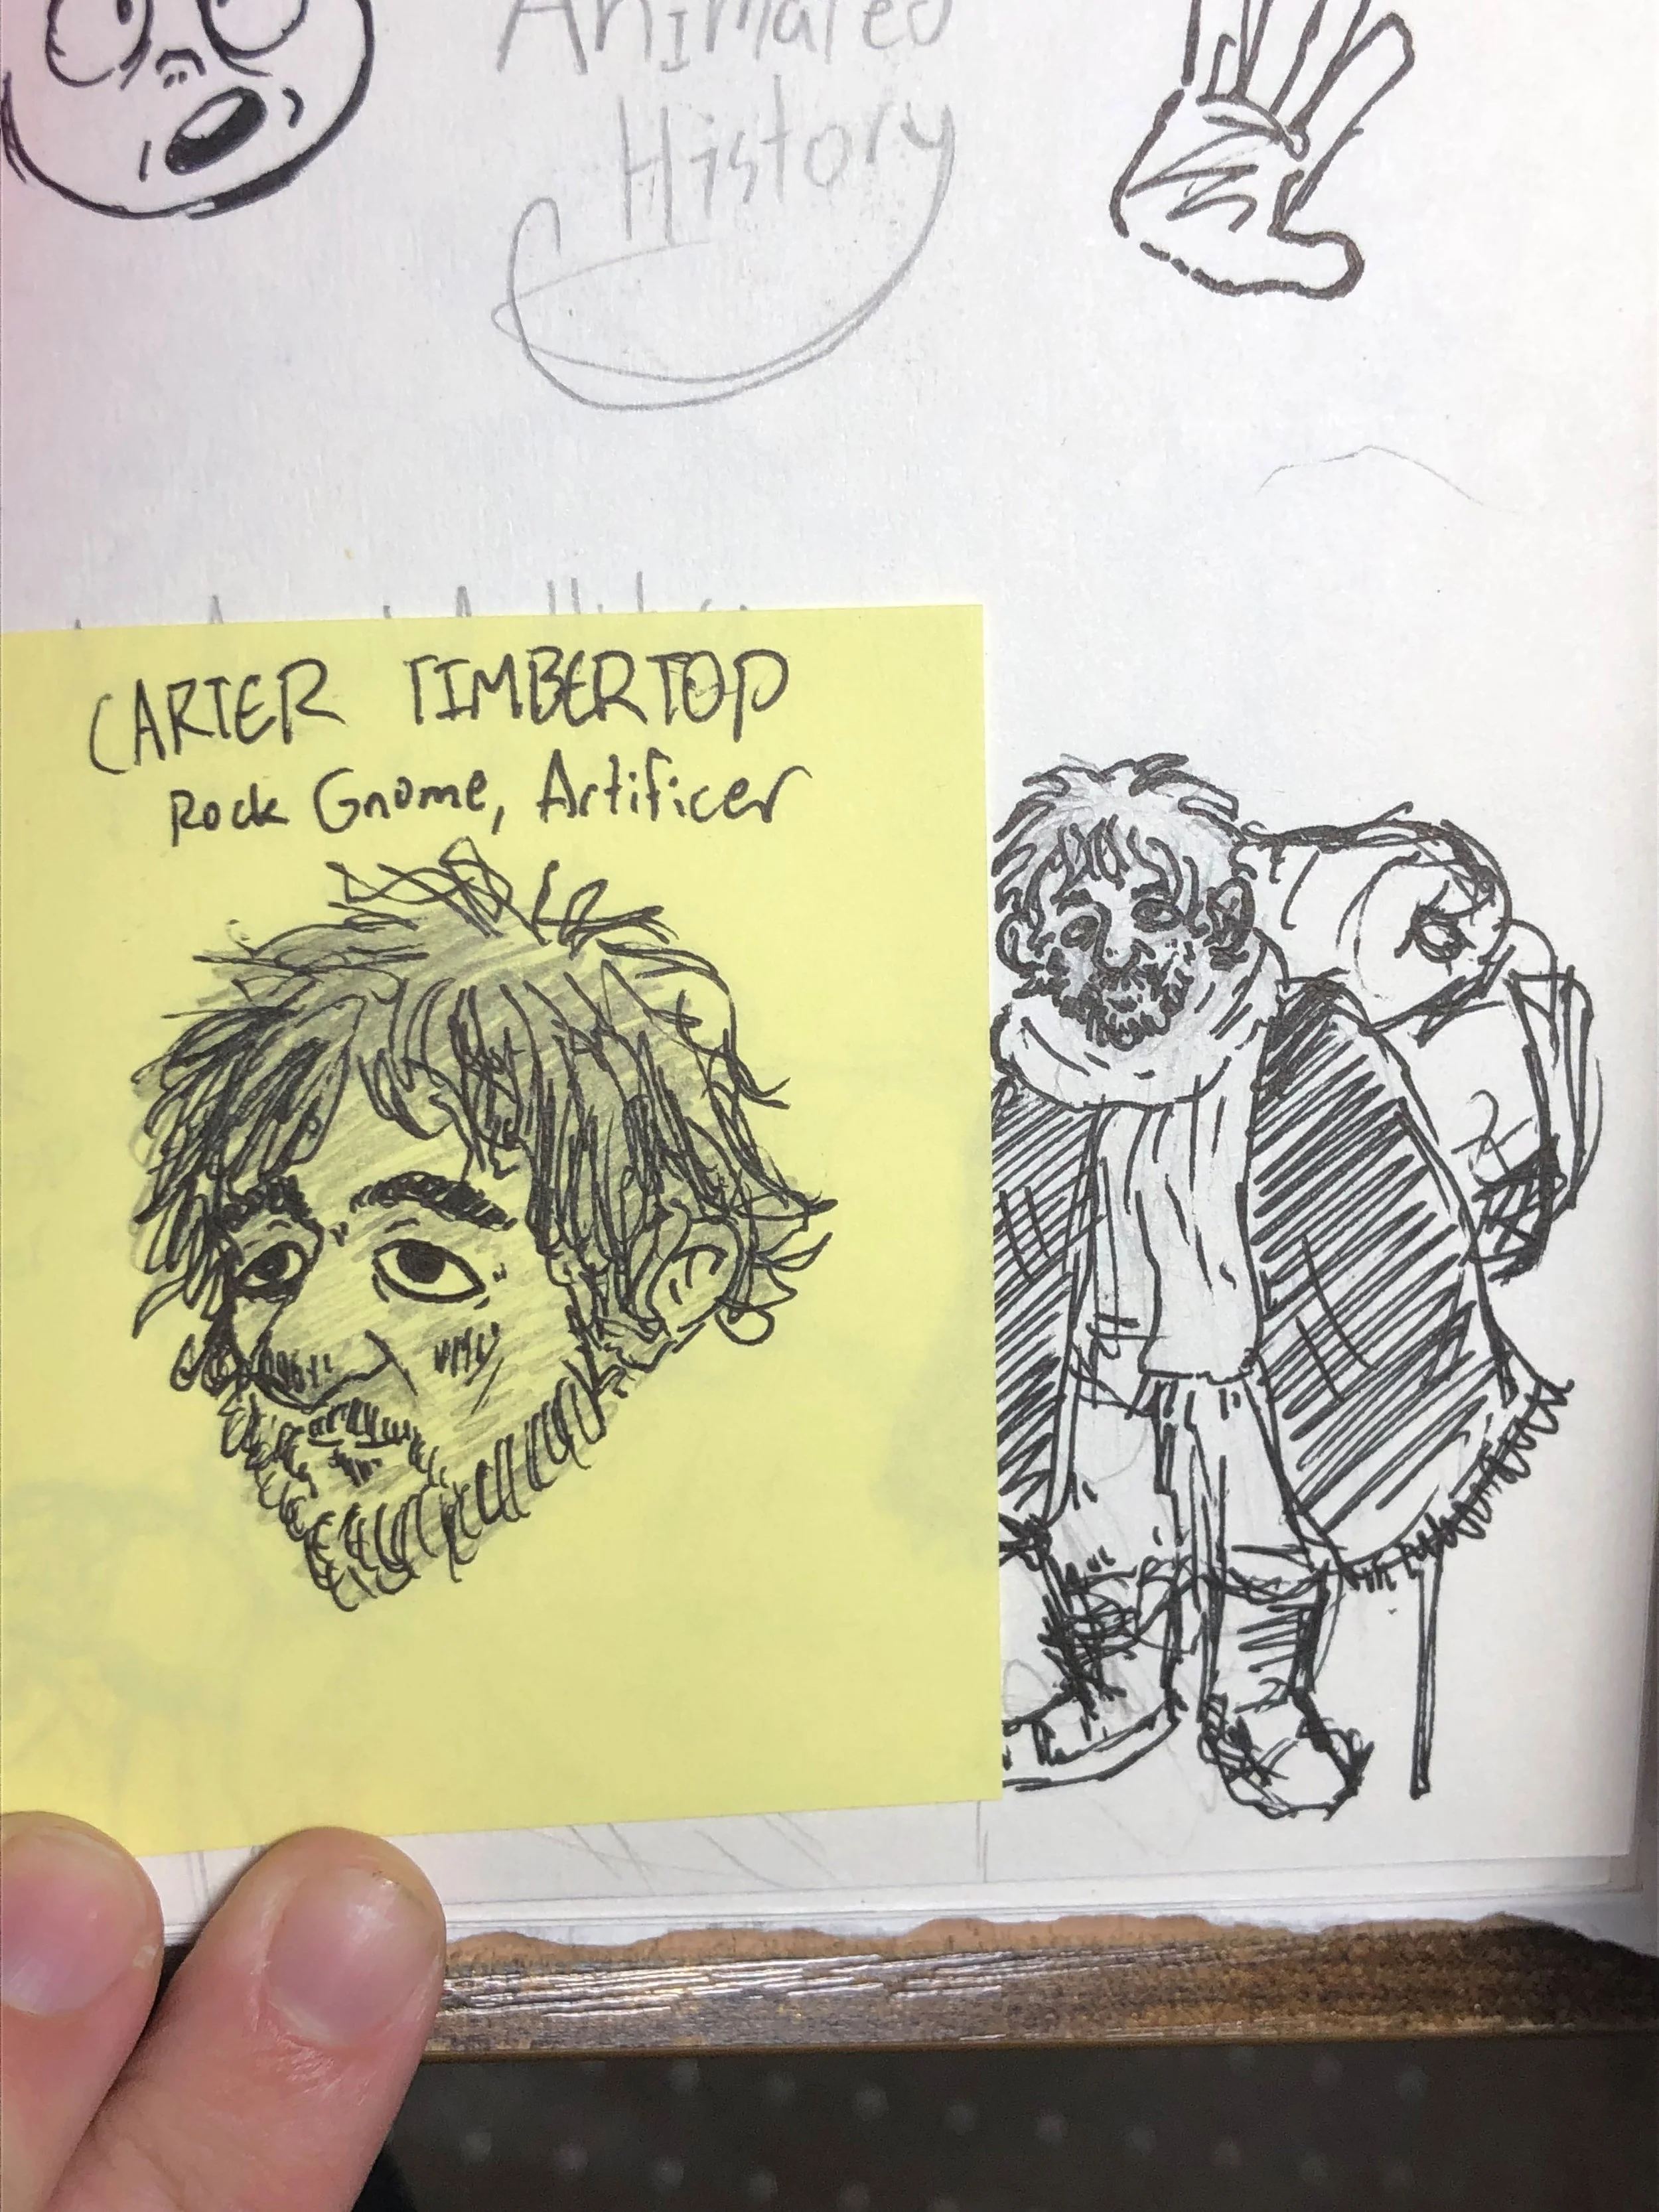 Animated
History
CARTER TIMBERTOP
Rock Gnome, Artificer